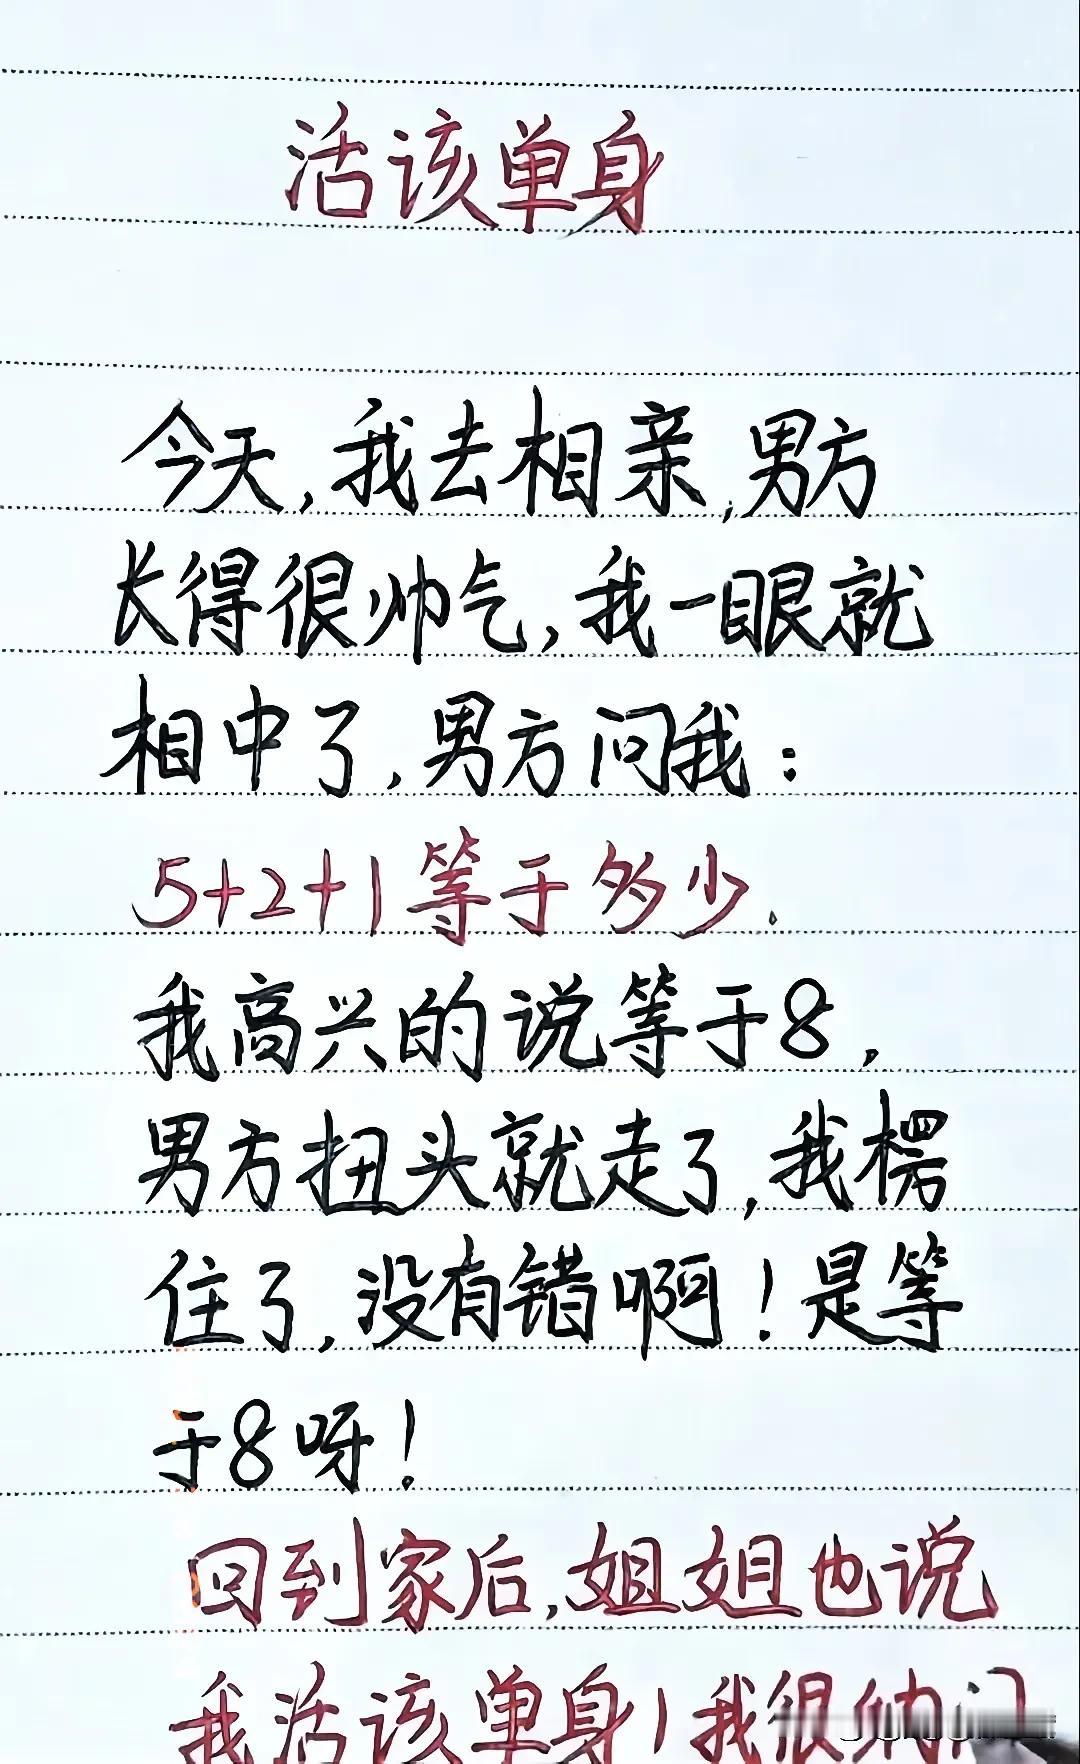 活该单身
今天,我去相亲,男方
长得很帅气,我一眼就
相中了,男方问我:
5+2+1等于多少.
我高兴的说等于8,
男方扭头就走了,我楞
住了,没有错啊!是等
于8呀!
回到家后,姐姐也说
我活该单身!我很